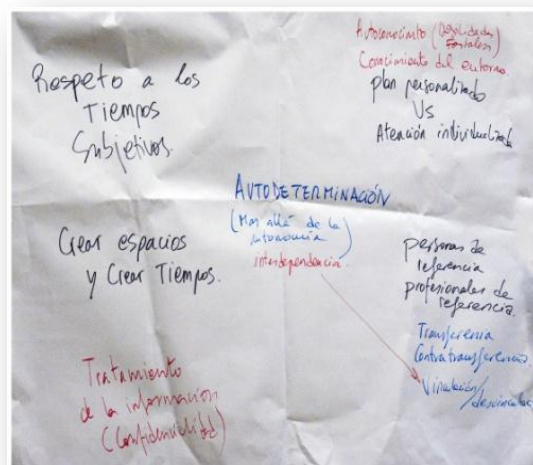 Respeto a los
Tiempos
Subjetivos.
Autoconocimiento (Debilidades
Fortalezas)
Conocimiento del entorno.
plan personalizado
Vs
Atención individualizada
AUTODETERMINACIÓN
(Mas allá de la
autonomía)
interdependencia.
Crear espacios
y Crear Tiempos.
personas de
referencia
profesionales de
referencia.
Transferencia
Contratransferencia.
Vinculación/
Tratamiento
de la información
(Confidencialidad)